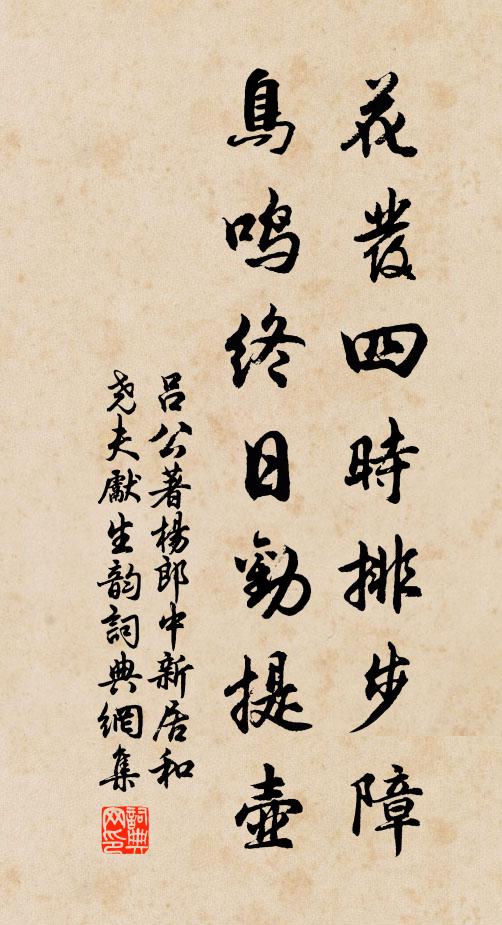 花發四時排步障
鳥鳴終日勸提壺
呂公著楊郎中新居和
尧夫獻生韵詞典網集
詞典网印